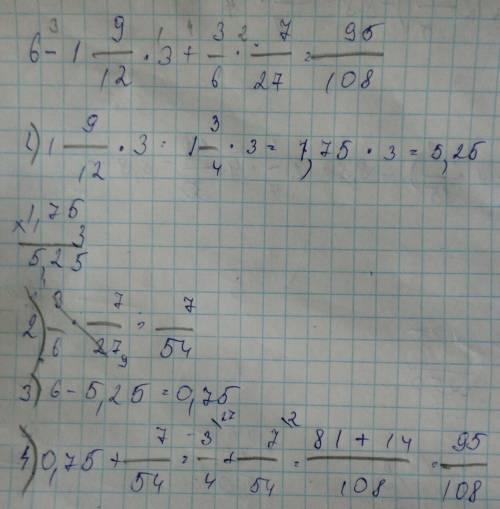 6 - 1 9/12 · 3 + 3/6 · 7/27 = 95/108
3 1 4 2
1) 1 9/12 · 3 = 1 3/4 · 3 = 1,75 · 3 = 5,25
1,75
× 3
5,25
2) 3/6 · 7/27 9 = 7/54
3) 6 - 5,25 = 0,75
4) 0,75 + 7/54 = 3/4 \27 + 7/54 \2 = 81 + 14/108 = 95/108